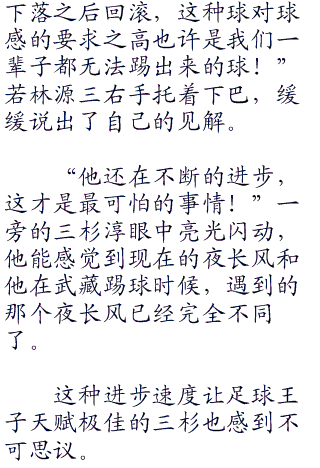 下落之后回滚，这种球对球
感的要求之高也许是我们一
辈子都无法踢出来的球！”
若林源三右手托着下巴，缓
缓说出了自己的见解。
“他还在不断的进步，
这才是最可怕的事情！”一
旁的三杉淳眼中亮光闪动，
他能感觉到现在的夜长风和
他在武藏踢球时候，遇到的
那个夜长风已经完全不同
了。
这种进步速度让足球王
子天赋极佳的三杉也感到不
可思议。